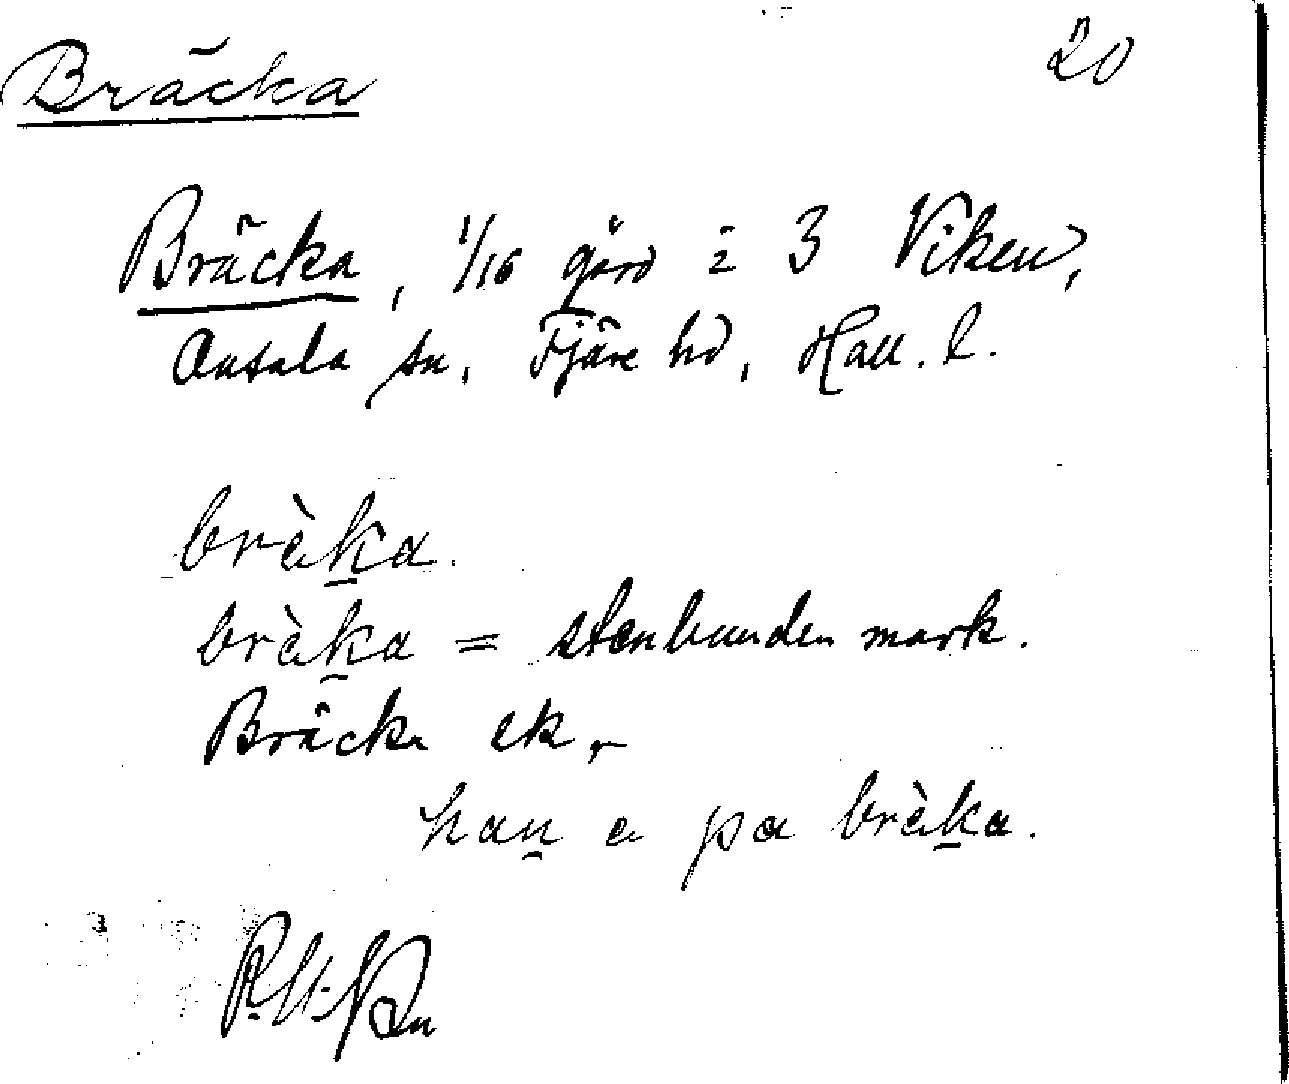 Bräcka 20
Bräcka, 1/16 gård i 3 Viken,
Onsala sn, Fjäre hd, Hall. l.
brèka.
brèka = stenbunden mark.
Bräcka ek,
han e pa brèka.